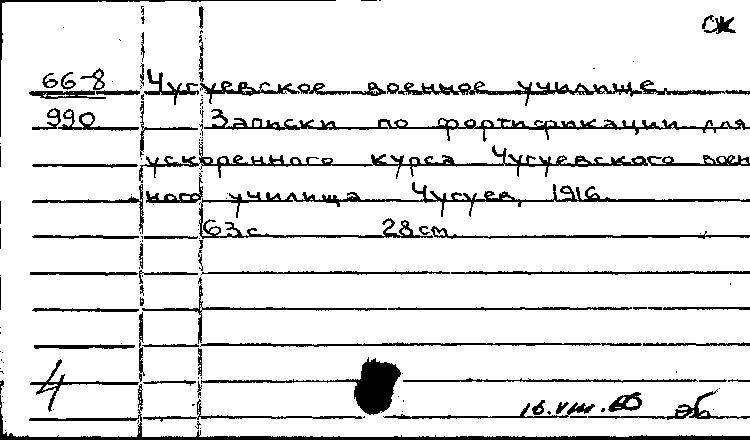 СЖ
66-8 Чугуевское военное училище.
990 Записки по фортификации для
ускоренного курса Чугуевского воен
ного училища Чугуев, 1916.
63 с. 28 см.
4
16.VIII.60 эб